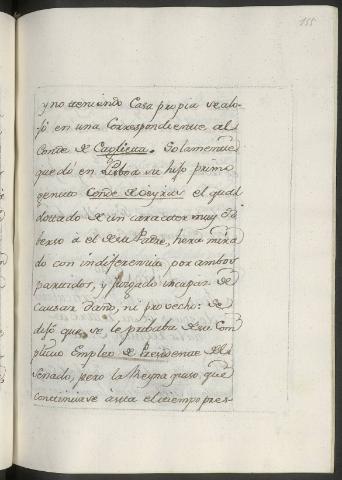 155
y no teniendo Casa propia se alo-
jó en una Correspondiente al
Conde de Caglieta. Solamente
quedó en Lisboa su hijo primo
genito Conde de Oeyras el qual
dottado de un caracter muy di
berso á el de su Padre, hera mira
do con indiferencia por ambos
partidos, y juzgado incapaz de
causar daño, ni provecho: se
dijo que se le probaba de su Com
plicio Empleo de Presidente del
Senado, pero la Reyna quiso que
continuase ásta el tiempo pres-